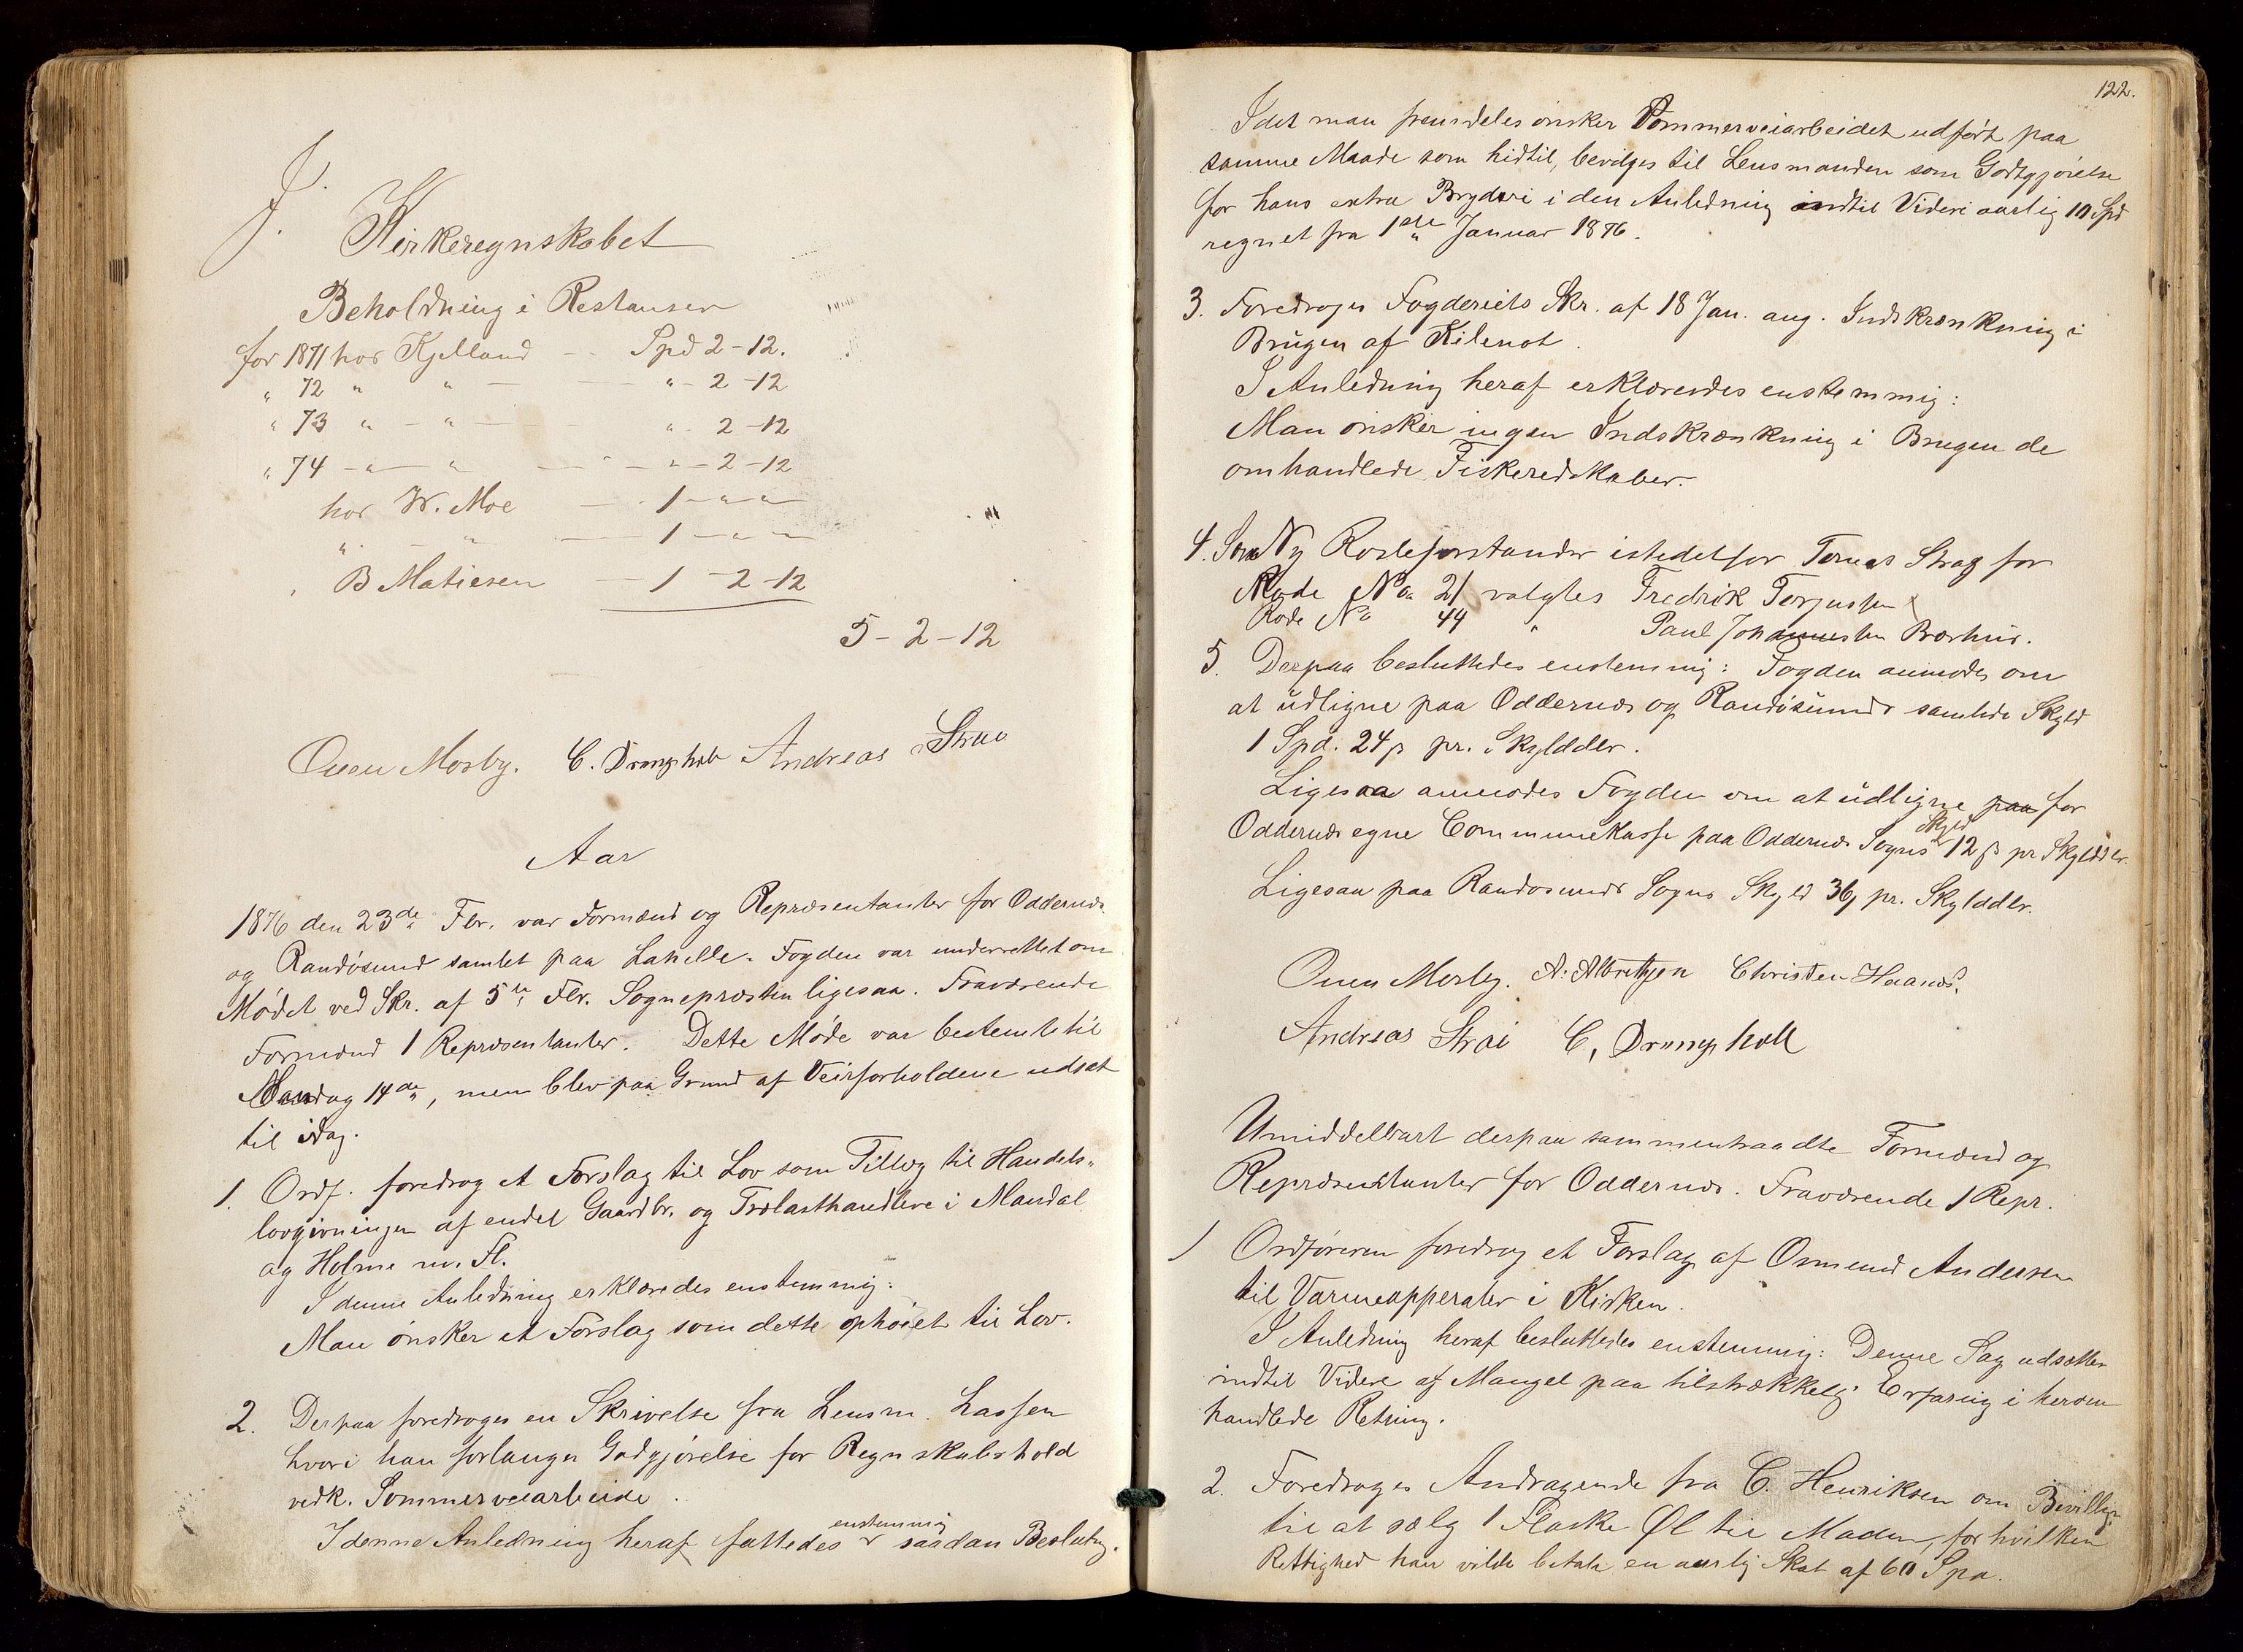 J.
Kirkeregnskabet
Beholdning i Restanser
for 1871 hos Kjelland - - Spd 2-12.
" 72 " " - " - 2 -12
" 73 " - " - " - 2 -12
" 74 - " - " - - " - 2 -12
hos W. Moe - - 1 - " "
" - " - 1 - " -
" B Matiesen - 1 - 2 -12
5 - 2 - 12
Ouen Mosby. C. Drangsholt Andreas Straie
Aar
1876 den 23de Fbr. var Formænd og Repræsentanter for Oddernæs
og Randøsund samlet paa Lahelle. Fogden var underrettet om
Mødet ved Skr. af 5te Fbr. Sognepræsten ligesaa. Fraværende
Formænd 1 Repræsentanter. Dette Møde var bestemt til
Mandag 14de, men blev paa Grund af Veirforholdene udsat
til idag.
1. Ordf. foredrog et Forslag til Lov som Tillæg til Handels-
lovgivningen af endel Gaardbr. og Trælasthandlere i Mandal
og Holme m. Fl.
I denne Anledning erklæredes enstemmig:
Man ønsker et Forslag som dette ophøiet til Lov.
2. Derpaa foredroges en Skrivelse fra Lensm. Lassen
hvori han forlanger Godgjørelse for Regnskabshold
vedk. Sommerveiarbeide.
I denne Anledning heraf fattedes enstemmig saadan Beslutng.
122.
Idet man fremdeles ønsker Sommerveiarbeidet udført paa
samme Maade som hidtil, bevilges til Lensmanden som Godtgjørelse
for hans extra Bryderi i den Anledning indtil Videre aarlig 10 Spd
regnet fra 1ste Januar 1876.
3. Foredroges Fogderiets Skr. af 18 Jan. ang. Indskrænkning i
Brugen af Kilenot.
I Anledning heraf erklærerdes enstemmig:
Man ønsker ingen Indskrænkning i Brugen de
omhandlede Fiskeredskaber.
4. Som Ny Rodeforstander istedetfor Tomas Strag for
Rode No 21 valgtes Fredrik Terjussen
Rode No 44 " Paul Johannesen Bærhus.
5. Derpaa besluttedes enstemmig: Fogden anmodes om
at udligne paa Oddernæs og Randøsunds samlede Skyld
1 Spd. 24 ß pr. Skylddlr.
Ligesaa anmodes Fogden om at udligne paa for
Oddernæs egne Communekasse paa Oddernæs Sogns Skyld 12 ß pr Skylddlr.
Ligesaa paa Randøsunds Sogns Skyld 36 ß pr. Skylddlr.
Ouen Mosby. A. Albretzen Christen Haanæs.
Andreas Strai C, Drangsholt
Umiddelbart derpaa sammentraadte Formænd og
Repræsentanter for Oddernæs. Fraværende 1 Repr.
1 Ordføreren foredrog et Forslag af Osmund Andersen
til Varmeapperater i Kirken.
I Anledning heraf besluttedes enstemmig: Denne Sag udsættes
indtil Videre af Mangel paa tilstrækkelig Erfaring i herom
handlede Retning.
2. Foredroges Andragende fra C. Henriksen om Bevillg.
til at sælg 1 Flaske Øl til Maden, for hvilken
Rettighed han vilde betale en aarlig Skat af 60 Spd.